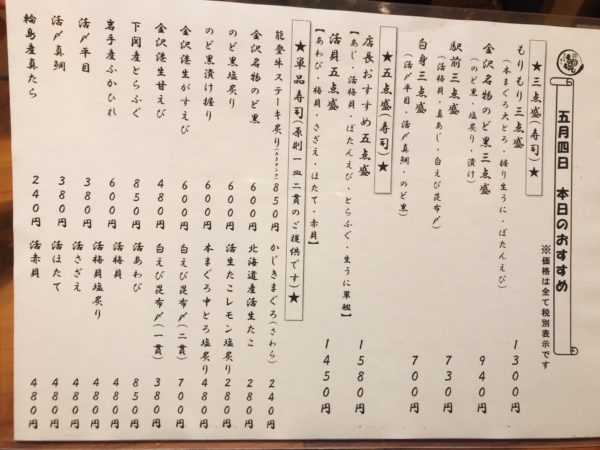 五月四日 本日のおすすめ
※価格は全て税別表示です
★三点盛(寿司)★
もりもり三点盛 1300円
(本まぐろ大とろ・握り生うに・ぼたんえび)
金沢名物のど黒三点盛 940円
(のど黒・塩炙り・漬け)
駅前三点盛 730円
(活梅貝・真あじ・白えび昆布〆)
白身三点盛 700円
(活〆平目・活〆真鯛・のど黒)
★五点盛(寿司)★
店長おすすめ五点盛 1580円
【あじ・活梅貝・ぼたんえび・とらふぐ・生うに軍艦】
活貝五点盛 1450円
【あわび・梅貝・さざえ・ほたて・赤貝】
★単品寿司(原則一皿二貫のご提供です)★
能登牛ステーキ炙り 850円 かじきまぐろ(さわら) 240円
金沢名物のど黒 600円 北海道産活生たこ 280円
のど黒塩炙り 600円 活生たこレモン塩炙り 280円
のど黒漬け握り 600円 本まぐろ中とろ塩炙り 480円
金沢港生がすえび 600円 白えび昆布〆(二貫) 700円
金沢港生甘えび 480円 白えび昆布〆(一貫) 380円
下関産とらふぐ 850円 活あわび 850円
岩手産ふかひれ 600円 活梅貝 480円
活〆平目 380円 活梅貝塩炙り 480円
活〆真鯛 380円 活さざえ 480円
輪島産真たら 240円 活ほたて 480円
活赤貝 480円